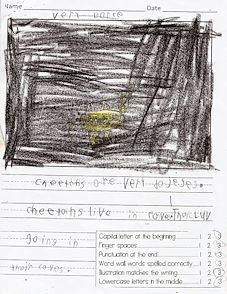 Name
Date
very
cheetahs are very
cheetahs live in
going in
their caves.
Capital letter at the beginning 1 2 3
Finger spaces 1 2 3
Punctuation at the end 1 2 3
Word wall words spelled correctly 1 2 3
Illustration matches the writing 1 2 3
Lowercase letters in the middle 1 2 3